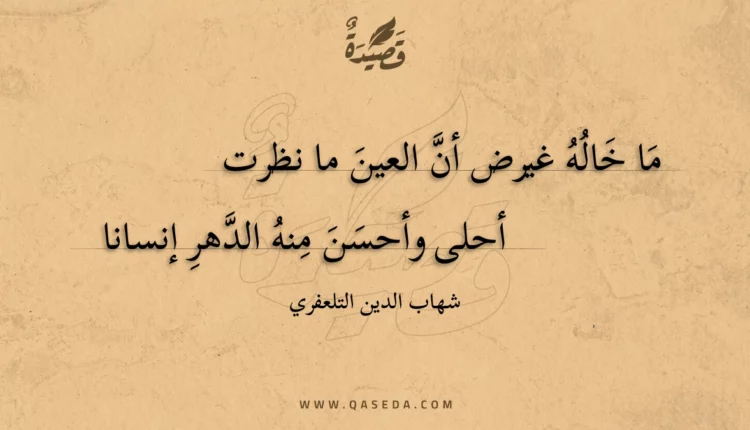 قَصِيْدَةٌ
مَا خَالُهُ غيرض أنَّ العينَ ما نظرت
أحلى وأحسَنَ مِنهُ الدَّهرِ إنسانا
شهاب الدين التلعفري
WWW.QASEDA.COM